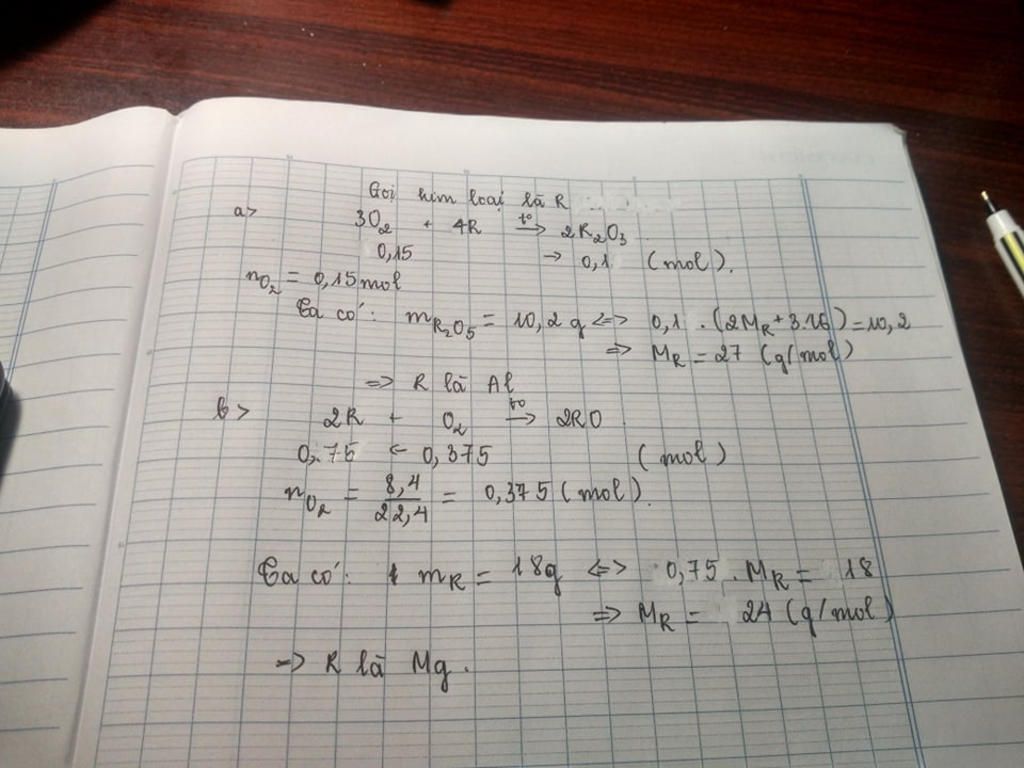 Gọi kim loại là R
a> 3O₂ + 4R →(t⁰) 2R₂O₃
0,15 → 0,1 (mol).
nO₂ = 0,15 mol
Ta có: mR₂O₅ = 10,2 g <=> 0,1 . (2MR + 3.16) = 10,2
=> MR = 27 (g/mol)
=> R là Al
b> 2R + O₂ →(t⁰) 2RO
0,75 ← 0,375 (mol)
nO₂ = 8,4/22,4 = 0,375 (mol).
Ta có: mR = 18g <=> 0,75 . MR = 18
=> MR = 24 (g/mol)
=> R là Mg.